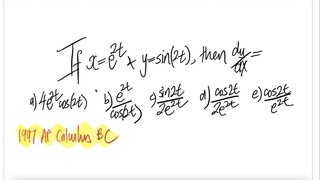 If x=e^2t + y=sin(2t), then dy/dx=
a) 4e^2t cos(2t) b) e^2t/cos(2t) c) sin2t/2e^2t d) cos2t/2e^2t e) cos2t/e^2t
1997 AP Calculus BC